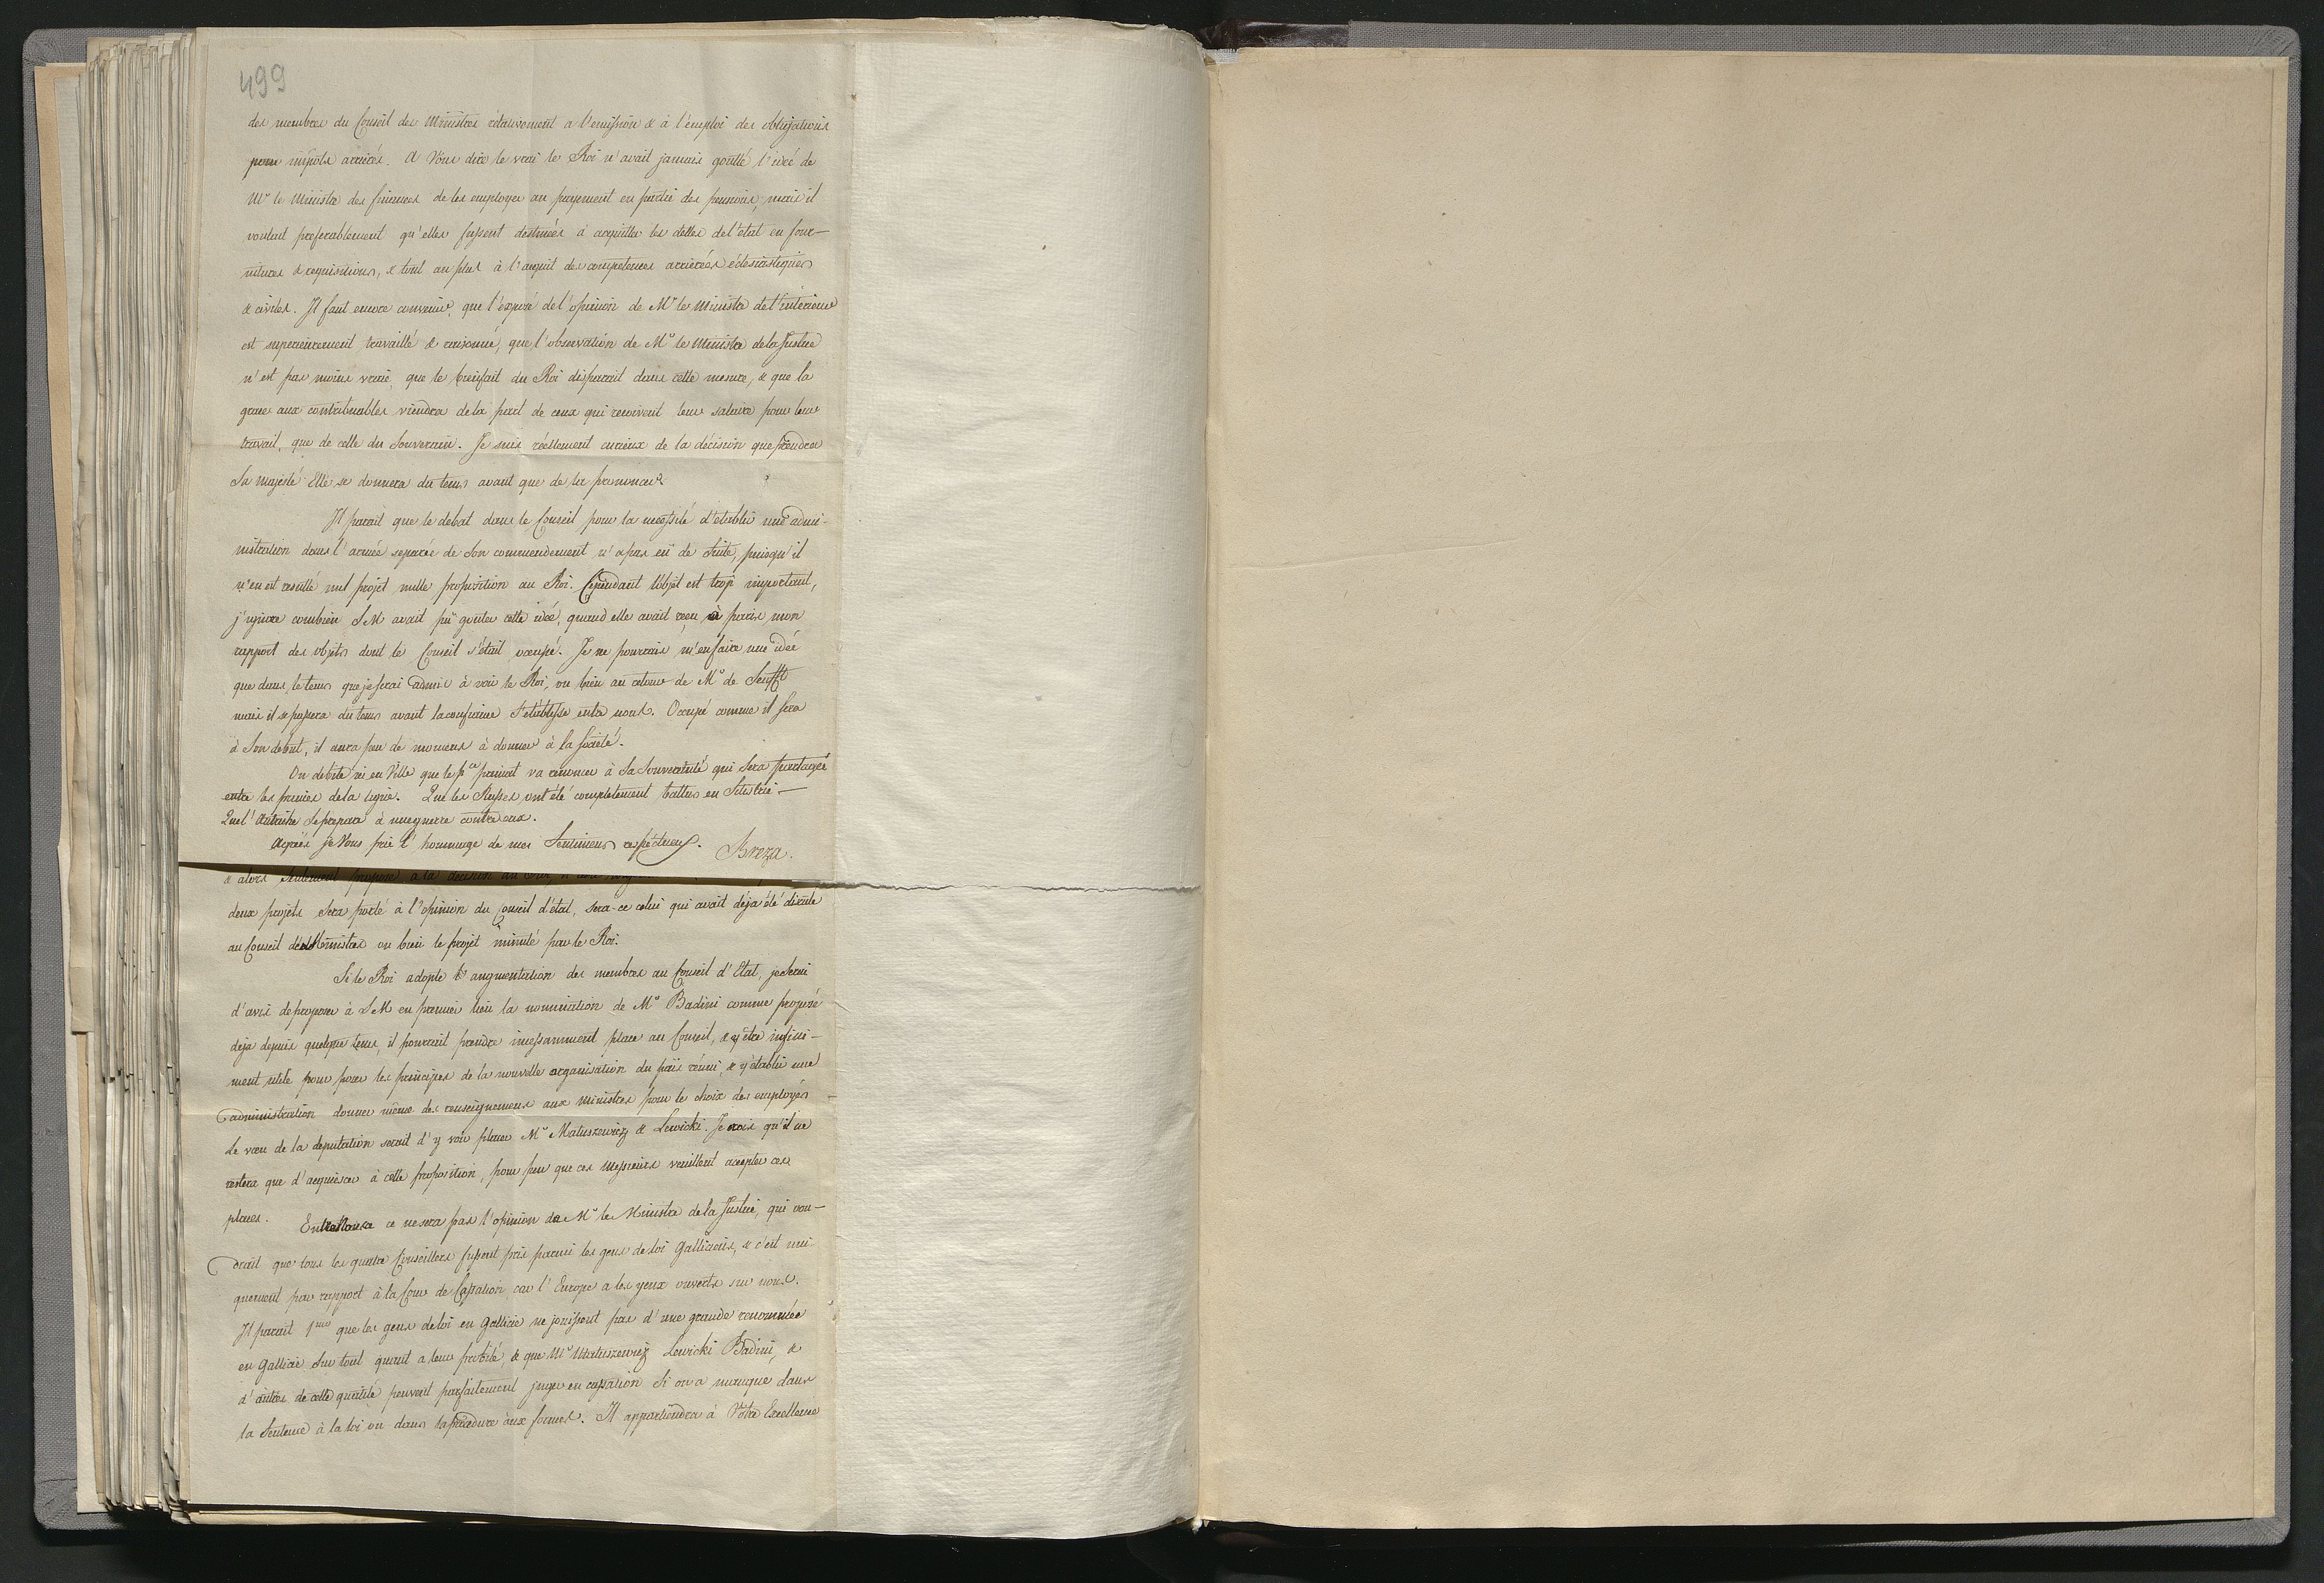 499
des membres du Conseil des Ministres relativement a l'emission & à l'emploi des obligations
pour impôts arrierés. A Vous dire le vrai le Roi n'avait jamais goutté l'ideé de
Mr le Ministre des finances de les employer au payement en partie des pensions, mais il
voulait preferablement qu'elles fussent destineés à acquitter les dettes de l'état en four-
nitures & requisitions, & tout au plus à l'acquit des competences arriereés éclesiastiques
& civiles. Il faut encore convenir, que l'exposé de l'opinion de Mr le Ministre de l'interieur
est superieurement travaillé & raisonné, que l'observation de Mr le Ministre de la Justice
n'est pas moins vraie, que le bienfait du Roi disparait dans cette mesure, & que la
grace aux contribuables viendra de la part de ceux qui recoivent leur salaire pour leur
travail, que de celle du Souverain. Je suis réellement curieux de la décision que prendra
Sa Majesté Elle se donnera du tems avant que de la prononcer
Il parait que le debat dans le Conseil pour la necessité d'etablir une admi-
nistration dans l'armée separée de son commendement n'a pas eü de suite, puisqu'il
n'en est resulté nul projet nulle proposition au Roi. Cependant l'objèt est trop important,
j'ignore combien S M avait pü gouter cette ideé, quand elle avait reçu à paris mon
rapport des objèts dont le Conseil s'était occupé. Je ne pourrais m'en faire une ideé
que dans le tems que je serai admis à voir le Roi, ou bien au retour de Mr de Senfft
mais il se passera du tems avant la confiance s'établisse entre nous. Occupé comme il sera
à Son debut, il aura peu de momens à donner à la societé.
On debite ici en Ville que le Pce primat va renoncer à Sa Souveraineté qui sera partagée
entre les princes de la ligue. Que les Russes ont été completement battus en
Que l'Autriche se prepare à une guerre contre eux.
Agréés je Vous prie l'hommage de mes Sentimens respéctueux. Breza.
& alors seulement proposé a la decision du Roi,
deux projets sera porté à l'opinion du Conseil d'état, sera-ce celui qui avait déja été discuté
au Conseil des Ministres ou bien le projet minuté par le Roi.
Si le Roi adopte l'augmentation des membres au Conseil d'Etat, je serai
d'avis de proposer à S M en premier lieu la nomination de Mr Badeni comme proposé
deja depuis quelque tems, il pourrait prendre incessamment place au Conseil, & y être infini-
ment utile pour poser les principes de la nouvelle organisation du païs réuni, & y établir une
administration donner même des renseignemens aux Ministres pour le choix des employés
Le vœu de la deputation serait d'y voir placer Mr Matuszewicz & Lewicki. Je crois qu'il ne
restera que d'acquiescer à cette proposition, pour peu que ces Messieurs veuillent accepter ces
places.
Entre Nous ce ne sera pas l'opinion de Mr le Ministre de la Justice, qui vou-
drait que tous les quatre Conseillers fussent pris parmi les gens de loi Galliciens, & c'est uni
quement par rapport à la Cour de Cassation, car l'Europe a les yeux ouverts sur nous.
Il parait 1mo que les gens de loi en Gallicie ne jouissent pas d'une grande renommée
en Gallicie Sur tout quant a leur probité, & que Mrs Matuszewicz Lewicki Badeni, &
d'autres de cette qualité peuvent parfaitement juger en cassation Si on a manqué dans
la Sentence à la loi ou dans la procedure aux formes. Il appartiendra à Votre Excellence